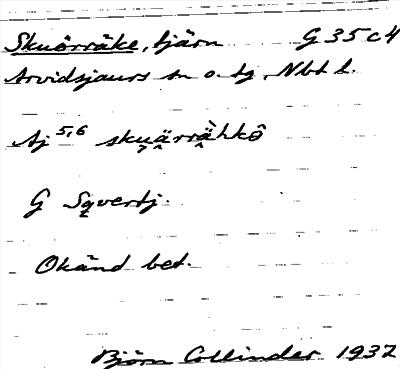 Skuörräke, tjärn G 35 c 4
Arvidsjaurs sn o. tg. Nbt l.
Aj 5,6 sku̯ä̭rrä̭̀hkô
G Sqvertj.
Okänd bet.
Björn Collinder 1937